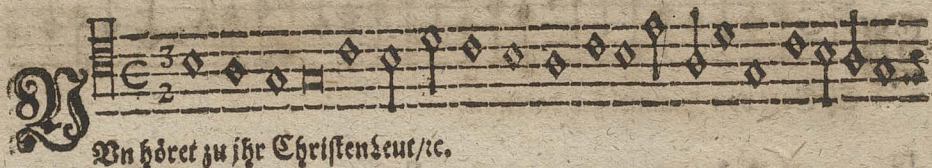 NVn höret zu jhr Christenleut/ꝛc.